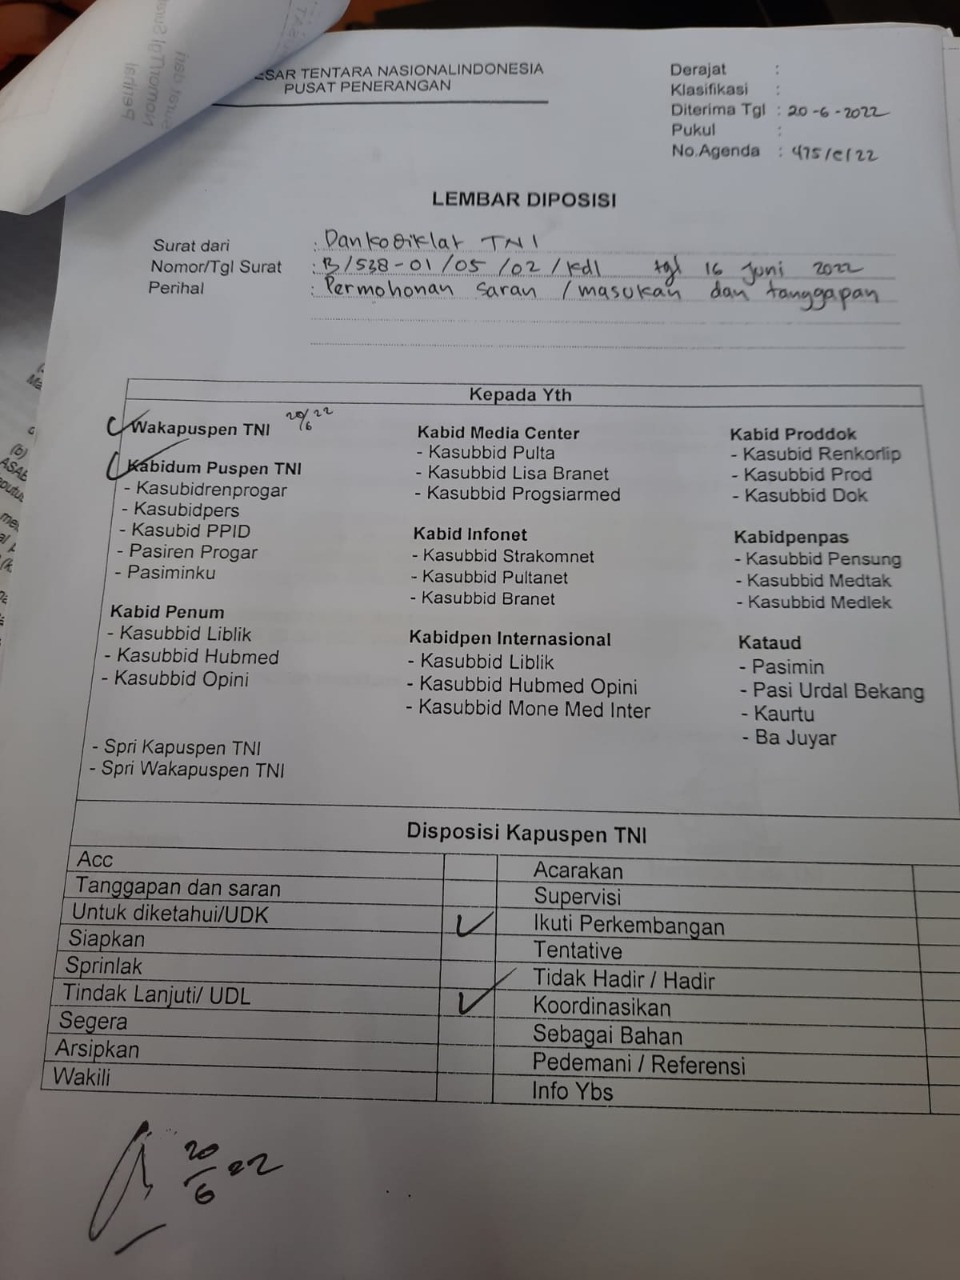 ESAR TENTARA NASIONALINDONESIA
PUSAT PENERANGAN
Derajat :
Klasifikasi :
Diterima Tgl : 20-6-2022
Pukul :
No.Agenda : 475/e/22
LEMBAR DIPOSISI
Surat dari : Dankodiklat TNI
Nomor/Tgl Surat : B/538-01/05/02/Kdl tgl 16 Juni 2022
Perihal : Permohonan saran / masukan dan tanggapan
Kepada Yth
Wakapuspen TNI 20/6 22
Kabidum Puspen TNI
- Kasubidrenprogar
- Kasubidpers
- Kasubid PPID
- Pasiren Progar
- Pasiminku
Kabid Penum
- Kasubbid Liblik
- Kasubbid Hubmed
- Kasubbid Opini
- Spri Kapuspen TNI
- Spri Wakapuspen TNI
Kabid Media Center
- Kasubbid Pulta
- Kasubbid Lisa Branet
- Kasubbid Progsiarmed
Kabid Infonet
- Kasubbid Strakomnet
- Kasubbid Pultanet
- Kasubbid Branet
Kabidpen Internasional
- Kasubbid Liblik
- Kasubbid Hubmed Opini
- Kasubbid Mone Med Inter
Kabid Proddok
- Kasubid Renkorlip
- Kasubbid Prod
- Kasubbid Dok
Kabidpenpas
- Kasubbid Pensung
- Kasubbid Medtak
- Kasubbid Medlek
Kataud
- Pasimin
- Pasi Urdal Bekang
- Kaurtu
- Ba Juyar
Disposisi Kapuspen TNI
Acc
Tanggapan dan saran
Untuk diketahui/UDK
Siapkan
Sprinlak
Tindak Lanjuti/ UDL
Segera
Arsipkan
Wakili
Acarakan
Supervisi
Ikuti Perkembangan
Tentative
Tidak Hadir / Hadir
Koordinasikan
Sebagai Bahan
Pedemani / Referensi
Info Ybs
20/6 22